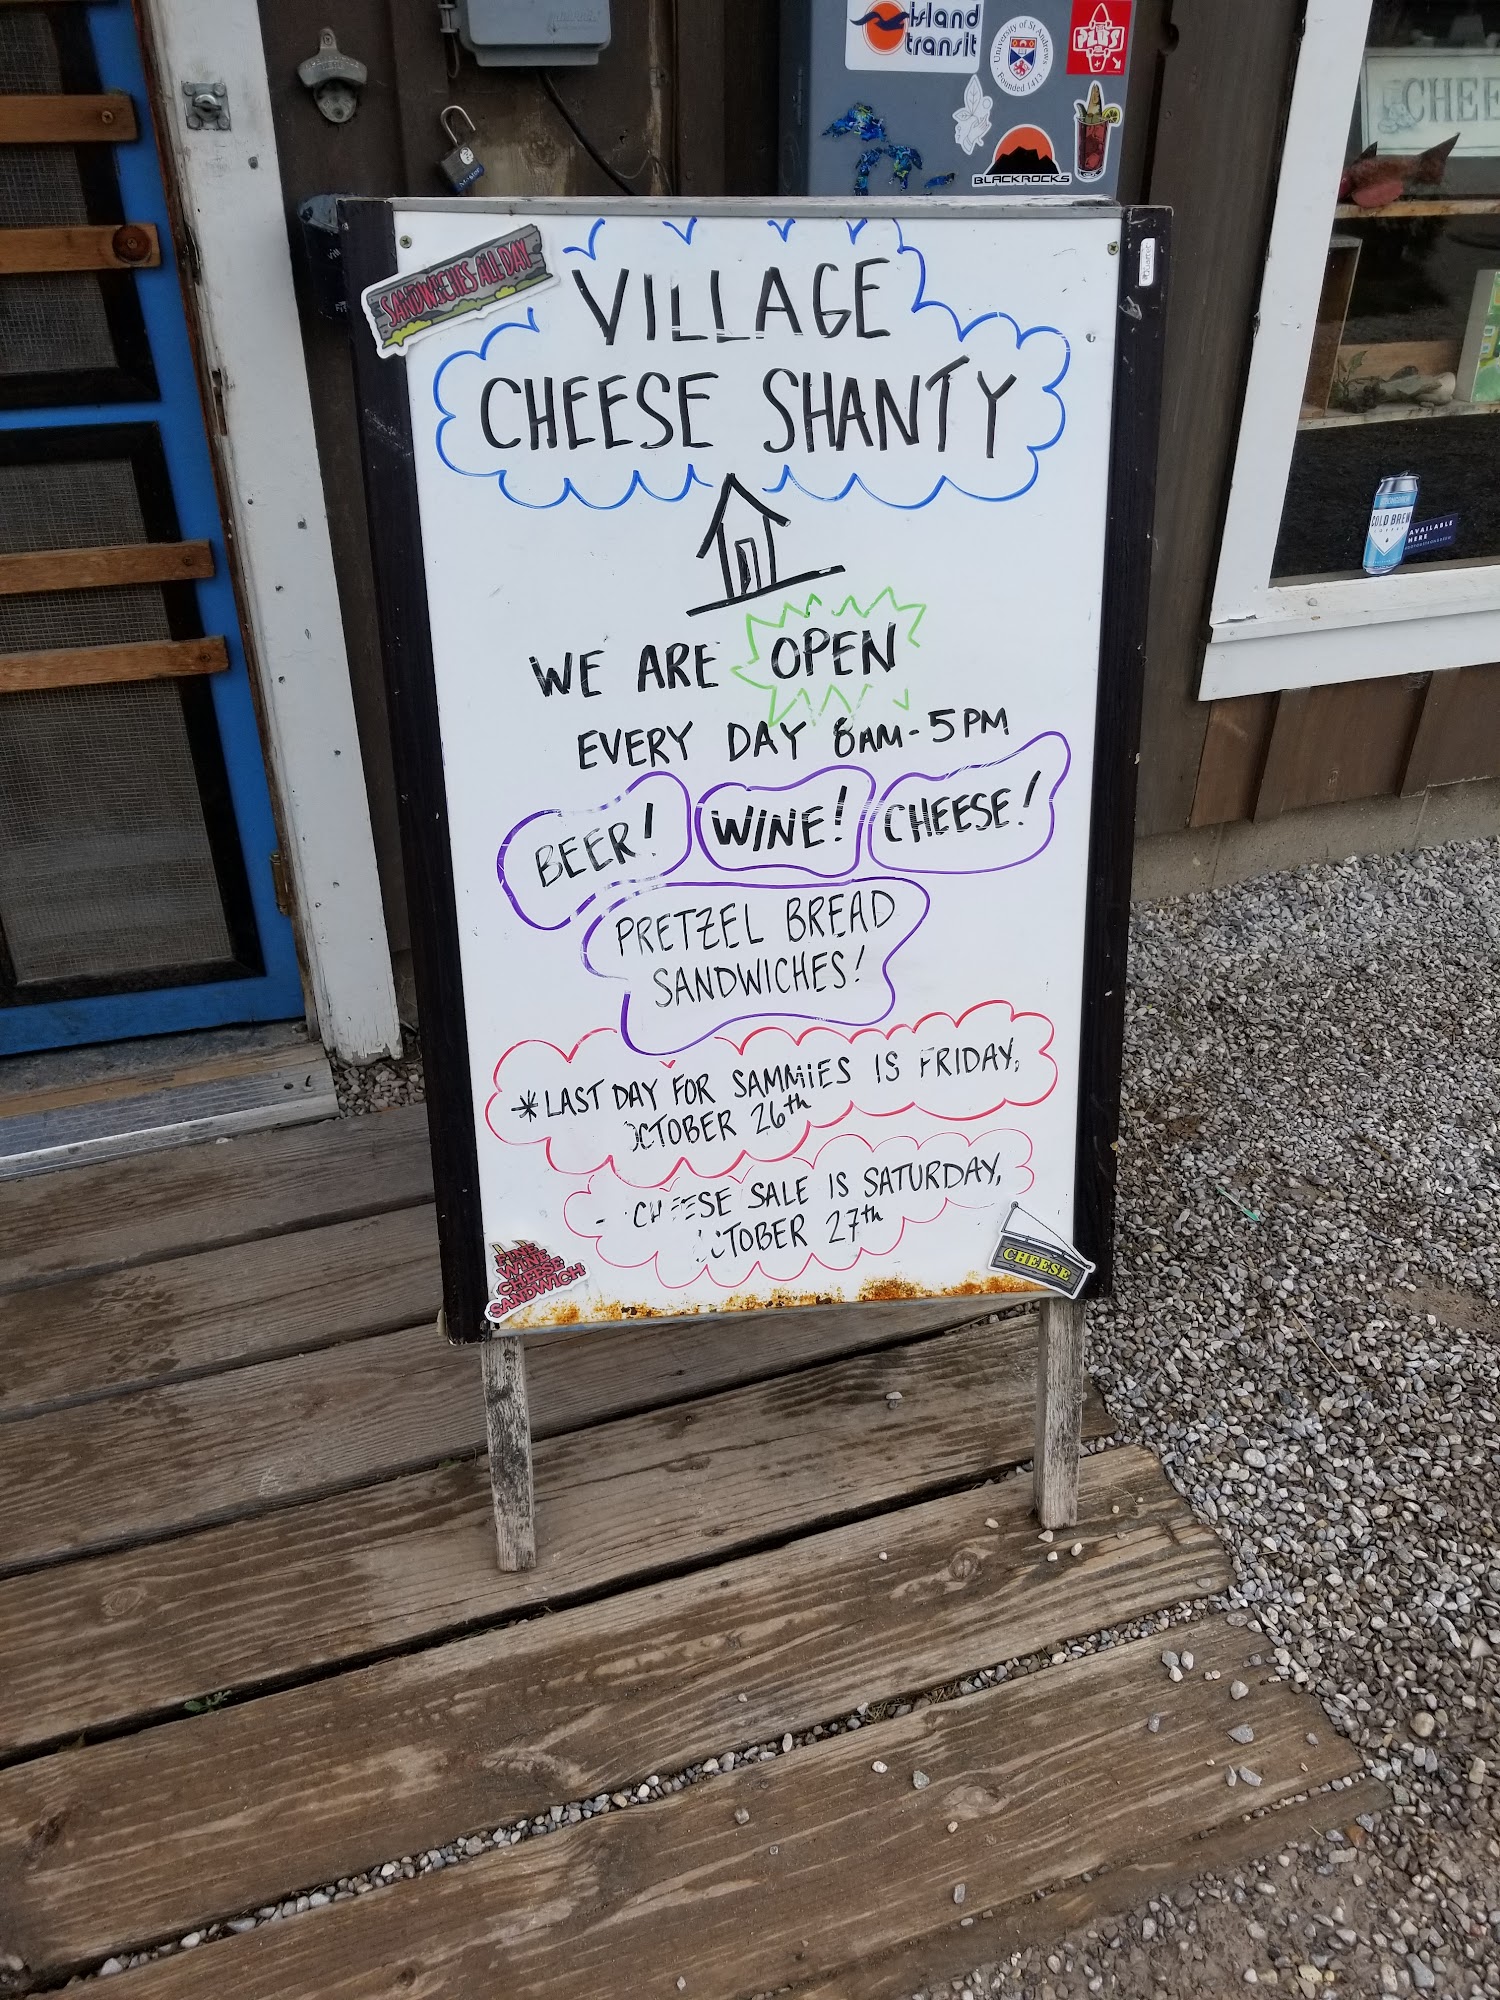 island
transit
University of St Andrews
Founded 1413
PLUS
BLACKROCKS
CHEE
SANDWICHES ALL DAY
VILLAGE
CHEESE SHANTY
WE ARE OPEN
EVERY DAY 8AM-5PM
BEER! WINE! CHEESE!
PRETZEL BREAD
SANDWICHES!
*LAST DAY FOR SAMMIES IS FRIDAY,
OCTOBER 26th
- CHEESE SALE IS SATURDAY,
OCTOBER 27th
FINE
WINE
CHEESE
SANDWICH
CHEESE
COLD BREW
AVAILABLE
HERE